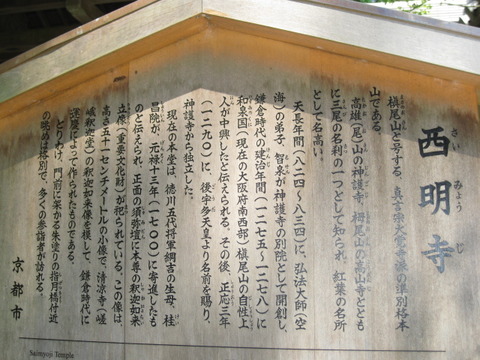 西明寺
さいみょうじ
槇尾山と号する、真言宗大覚寺派の準別格本
山である。
高雄(尾)山の神護寺、栂尾山の高山寺ととも
に三尾の名刹の一つとして知られ、紅葉の名所
として名高い。
天長年間(八二四〜八三四)に、弘法大師(空
海)の弟子、智泉が神護寺の別院として開創し、
鎌倉時代の建治年間(一二七五〜一二七八)に
和泉国(現在の大阪府南西部)槇尾山の自性上
人が中興したと伝えられる。その後、正応三年
(一二九〇)に、後宇多天皇より名前を賜り、
神護寺から独立した。
現在の本堂は、徳川五代将軍綱吉の生母、桂
昌院が、元禄十三年(一七〇〇)に寄進したも
のと伝えられ、正面の須弥壇に本尊の釈迦如来
立像(重要文化財)が祀られている。この像は、
高さ五十一センチメートルの小像で、清凉寺(嵯
峨釈迦堂)の釈迦如来像を模して、鎌倉時代に
運慶によって作られたものである。
とりわけ、門前に架かる朱塗りの指月橋付近
の眺めは格別で、多くの参詣者が訪れる。
京都市
Saimyoji Temple